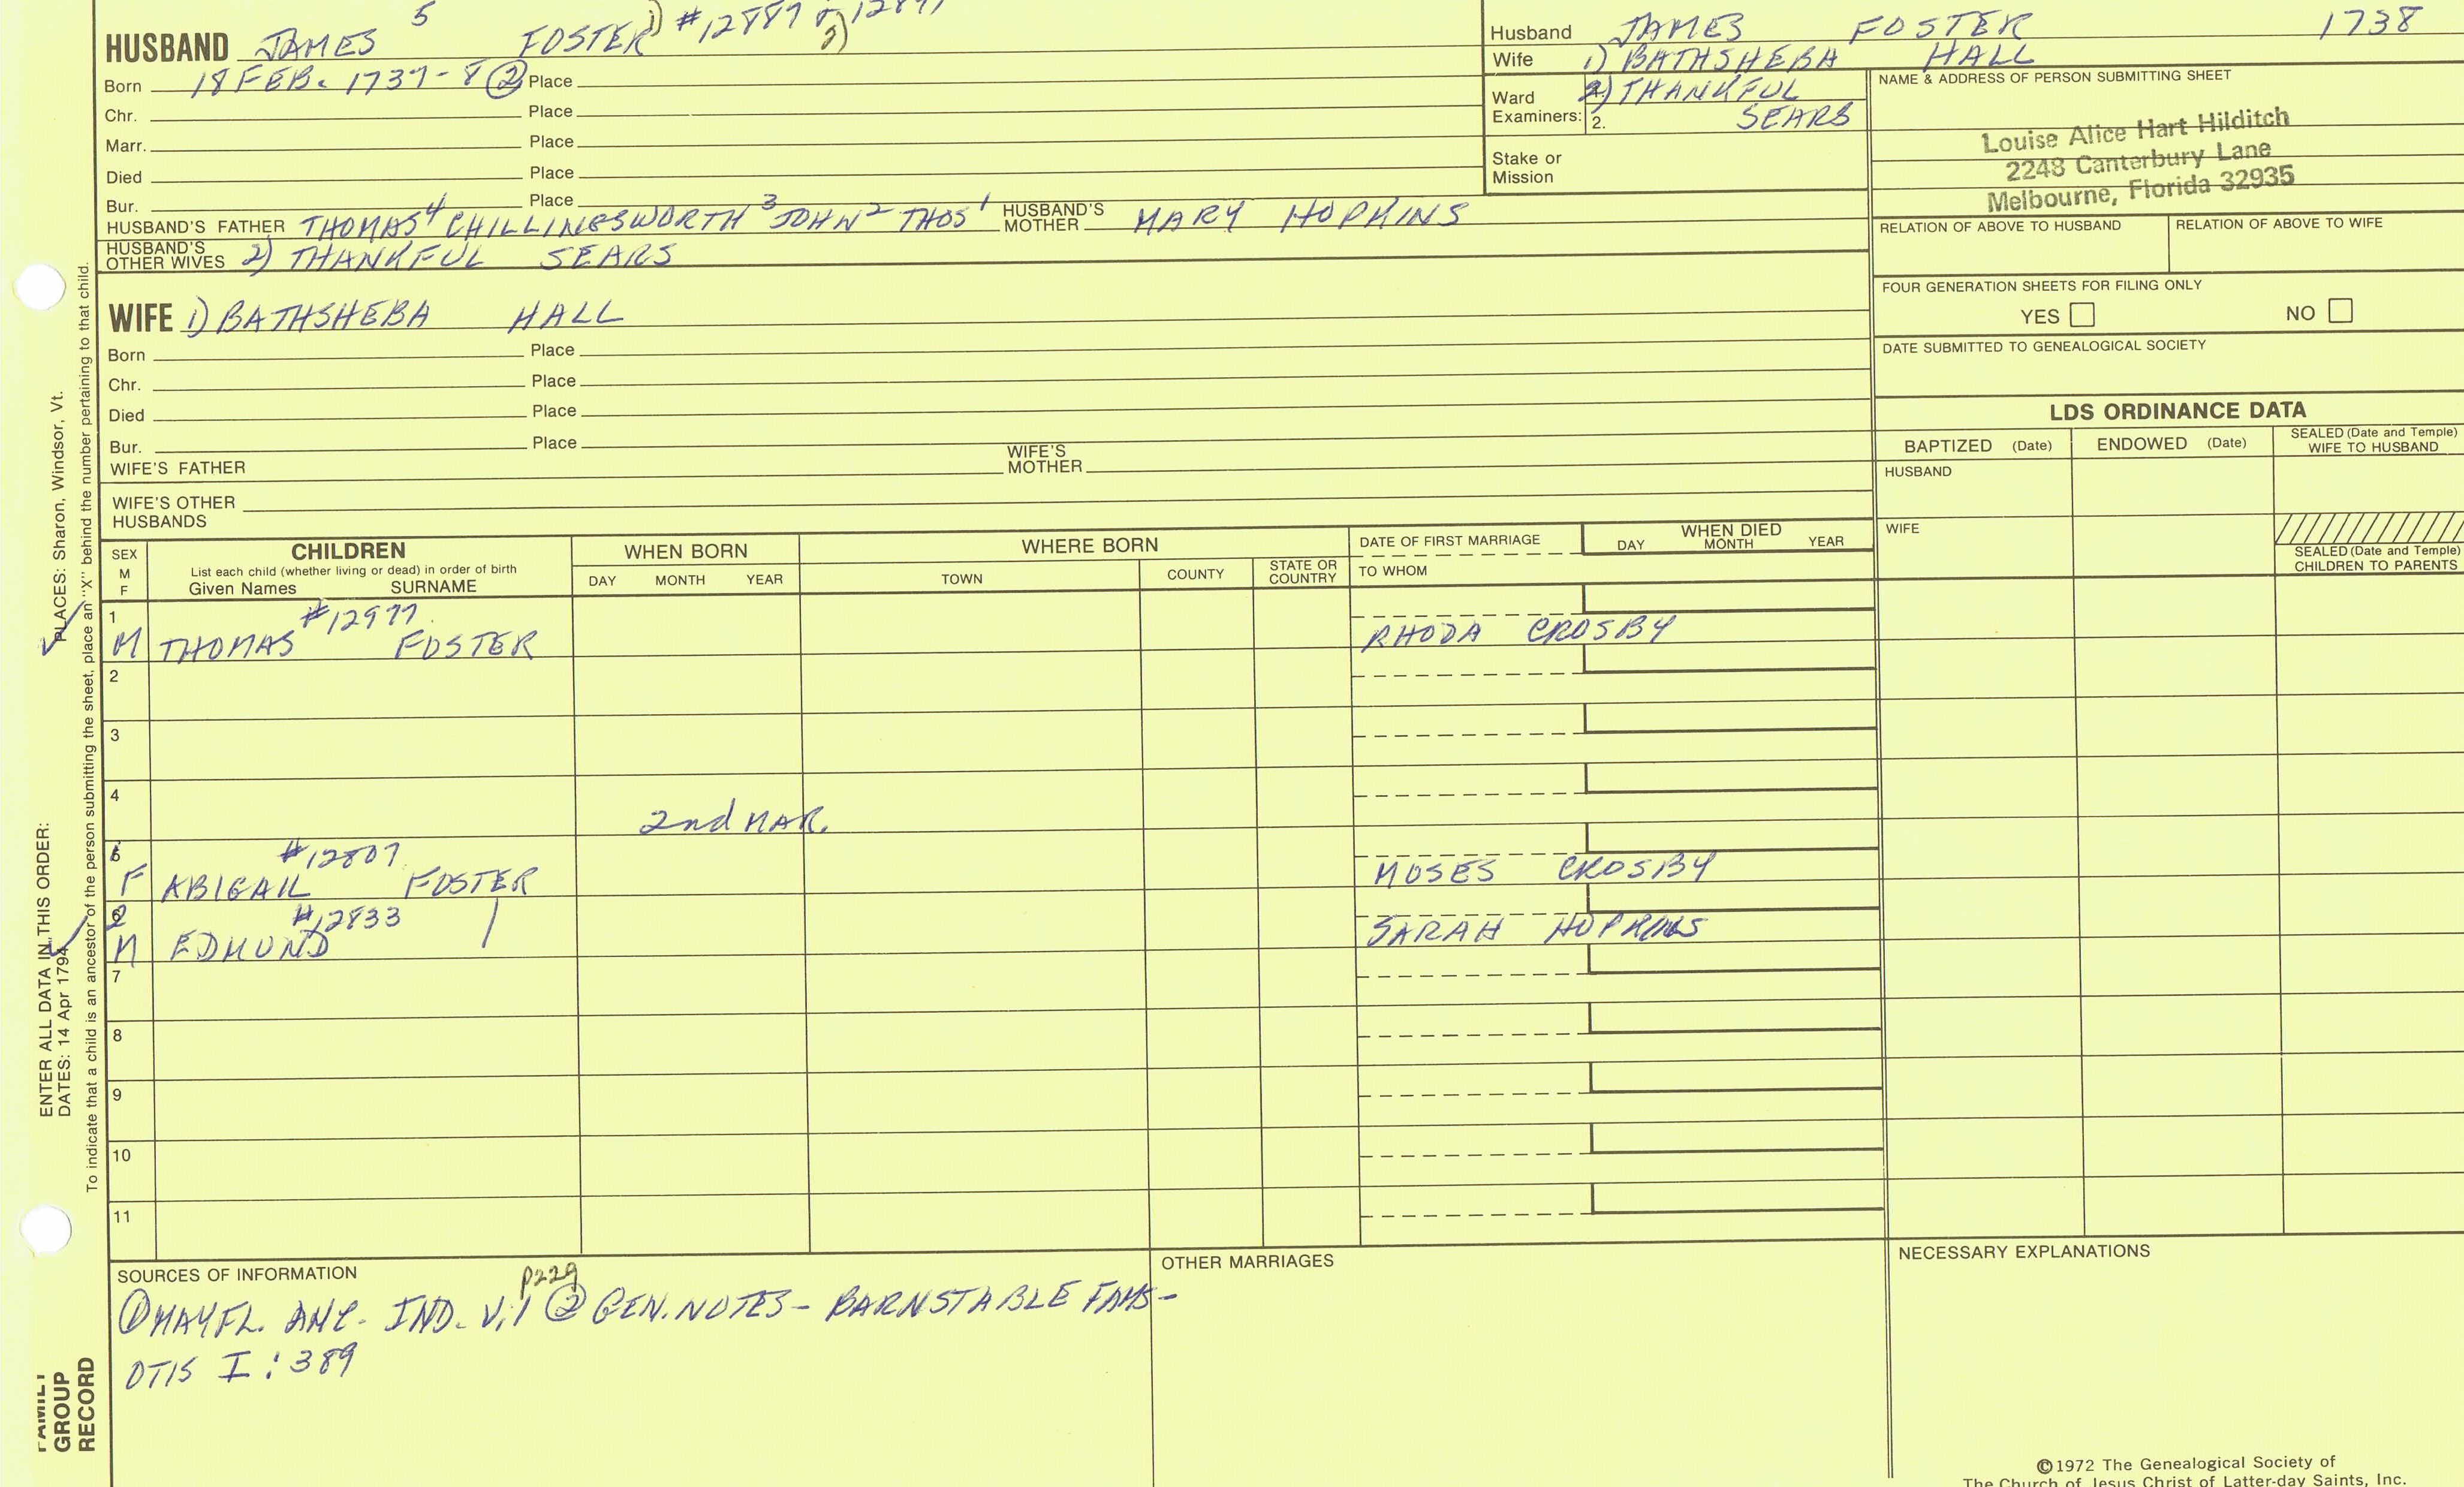 HUSBAND JAMES 5 FOSTER 1) #12889 & 2)
Born 18 FEB. 1737-8 ② Place
Chr. Place
Marr. Place
Died Place
Bur. Place
HUSBAND'S FATHER THOMAS 4 CHILLINGSWORTH 3 JOHN 2 THOS 1 HUSBAND'S MOTHER MARY HOPKINS
HUSBAND'S OTHER WIVES 2) THANKFUL SEARS
WIFE 1) BATHSHEBA HALL
Born Place
Chr. Place
Died Place
Bur. Place
WIFE'S FATHER WIFE'S MOTHER
WIFE'S OTHER HUSBANDS
Husband JAMES FOSTER 1738
Wife 1) BATHSHEBA HALL
Ward Examiners: 2) THANKFUL
2. SEARS
Stake or Mission
NAME & ADDRESS OF PERSON SUBMITTING SHEET
Louise Alice Hart Hilditch
2248 Canterbury Lane
Melbourne, Florida 32935
RELATION OF ABOVE TO HUSBAND RELATION OF ABOVE TO WIFE
FOUR GENERATION SHEETS FOR FILING ONLY
YES NO
DATE SUBMITTED TO GENEALOGICAL SOCIETY
LDS ORDINANCE DATA
BAPTIZED (Date) ENDOWED (Date) SEALED (Date and Temple) WIFE TO HUSBAND
HUSBAND
WIFE
SEALED (Date and Temple) CHILDREN TO PARENTS
SEX M F
CHILDREN
List each child (whether living or dead) in order of birth
Given Names SURNAME
WHEN BORN
DAY MONTH YEAR
WHERE BORN
TOWN COUNTY STATE OR COUNTRY
DATE OF FIRST MARRIAGE
TO WHOM
WHEN DIED
DAY MONTH YEAR
1 #12977
M THOMAS FOSTER RHODA CROSBY
2
3
4
2nd MAR.
#12807
F ABIGAIL FOSTER MOSES CROSBY
#12833
M EDMUND SARAH HOPKINS
7
8
9
10
11
SOURCES OF INFORMATION
p229
① MAYFL. ANC. IND. V.1 ② GEN. NOTES - BARNSTABLE FAMS-
OTIS I: 389
OTHER MARRIAGES
NECESSARY EXPLANATIONS
©1972 The Genealogical Society of
The Church of Jesus Christ of Latter-day Saints, Inc.
ENTER ALL DATA IN THIS ORDER:
DATES: 14 Apr 1794
PLACES: Sharon, Windsor, Vt.
To indicate that a child is an ancestor of the person submitting the sheet, place an "X" behind the number pertaining to that child.
FAMILY
GROUP
RECORD